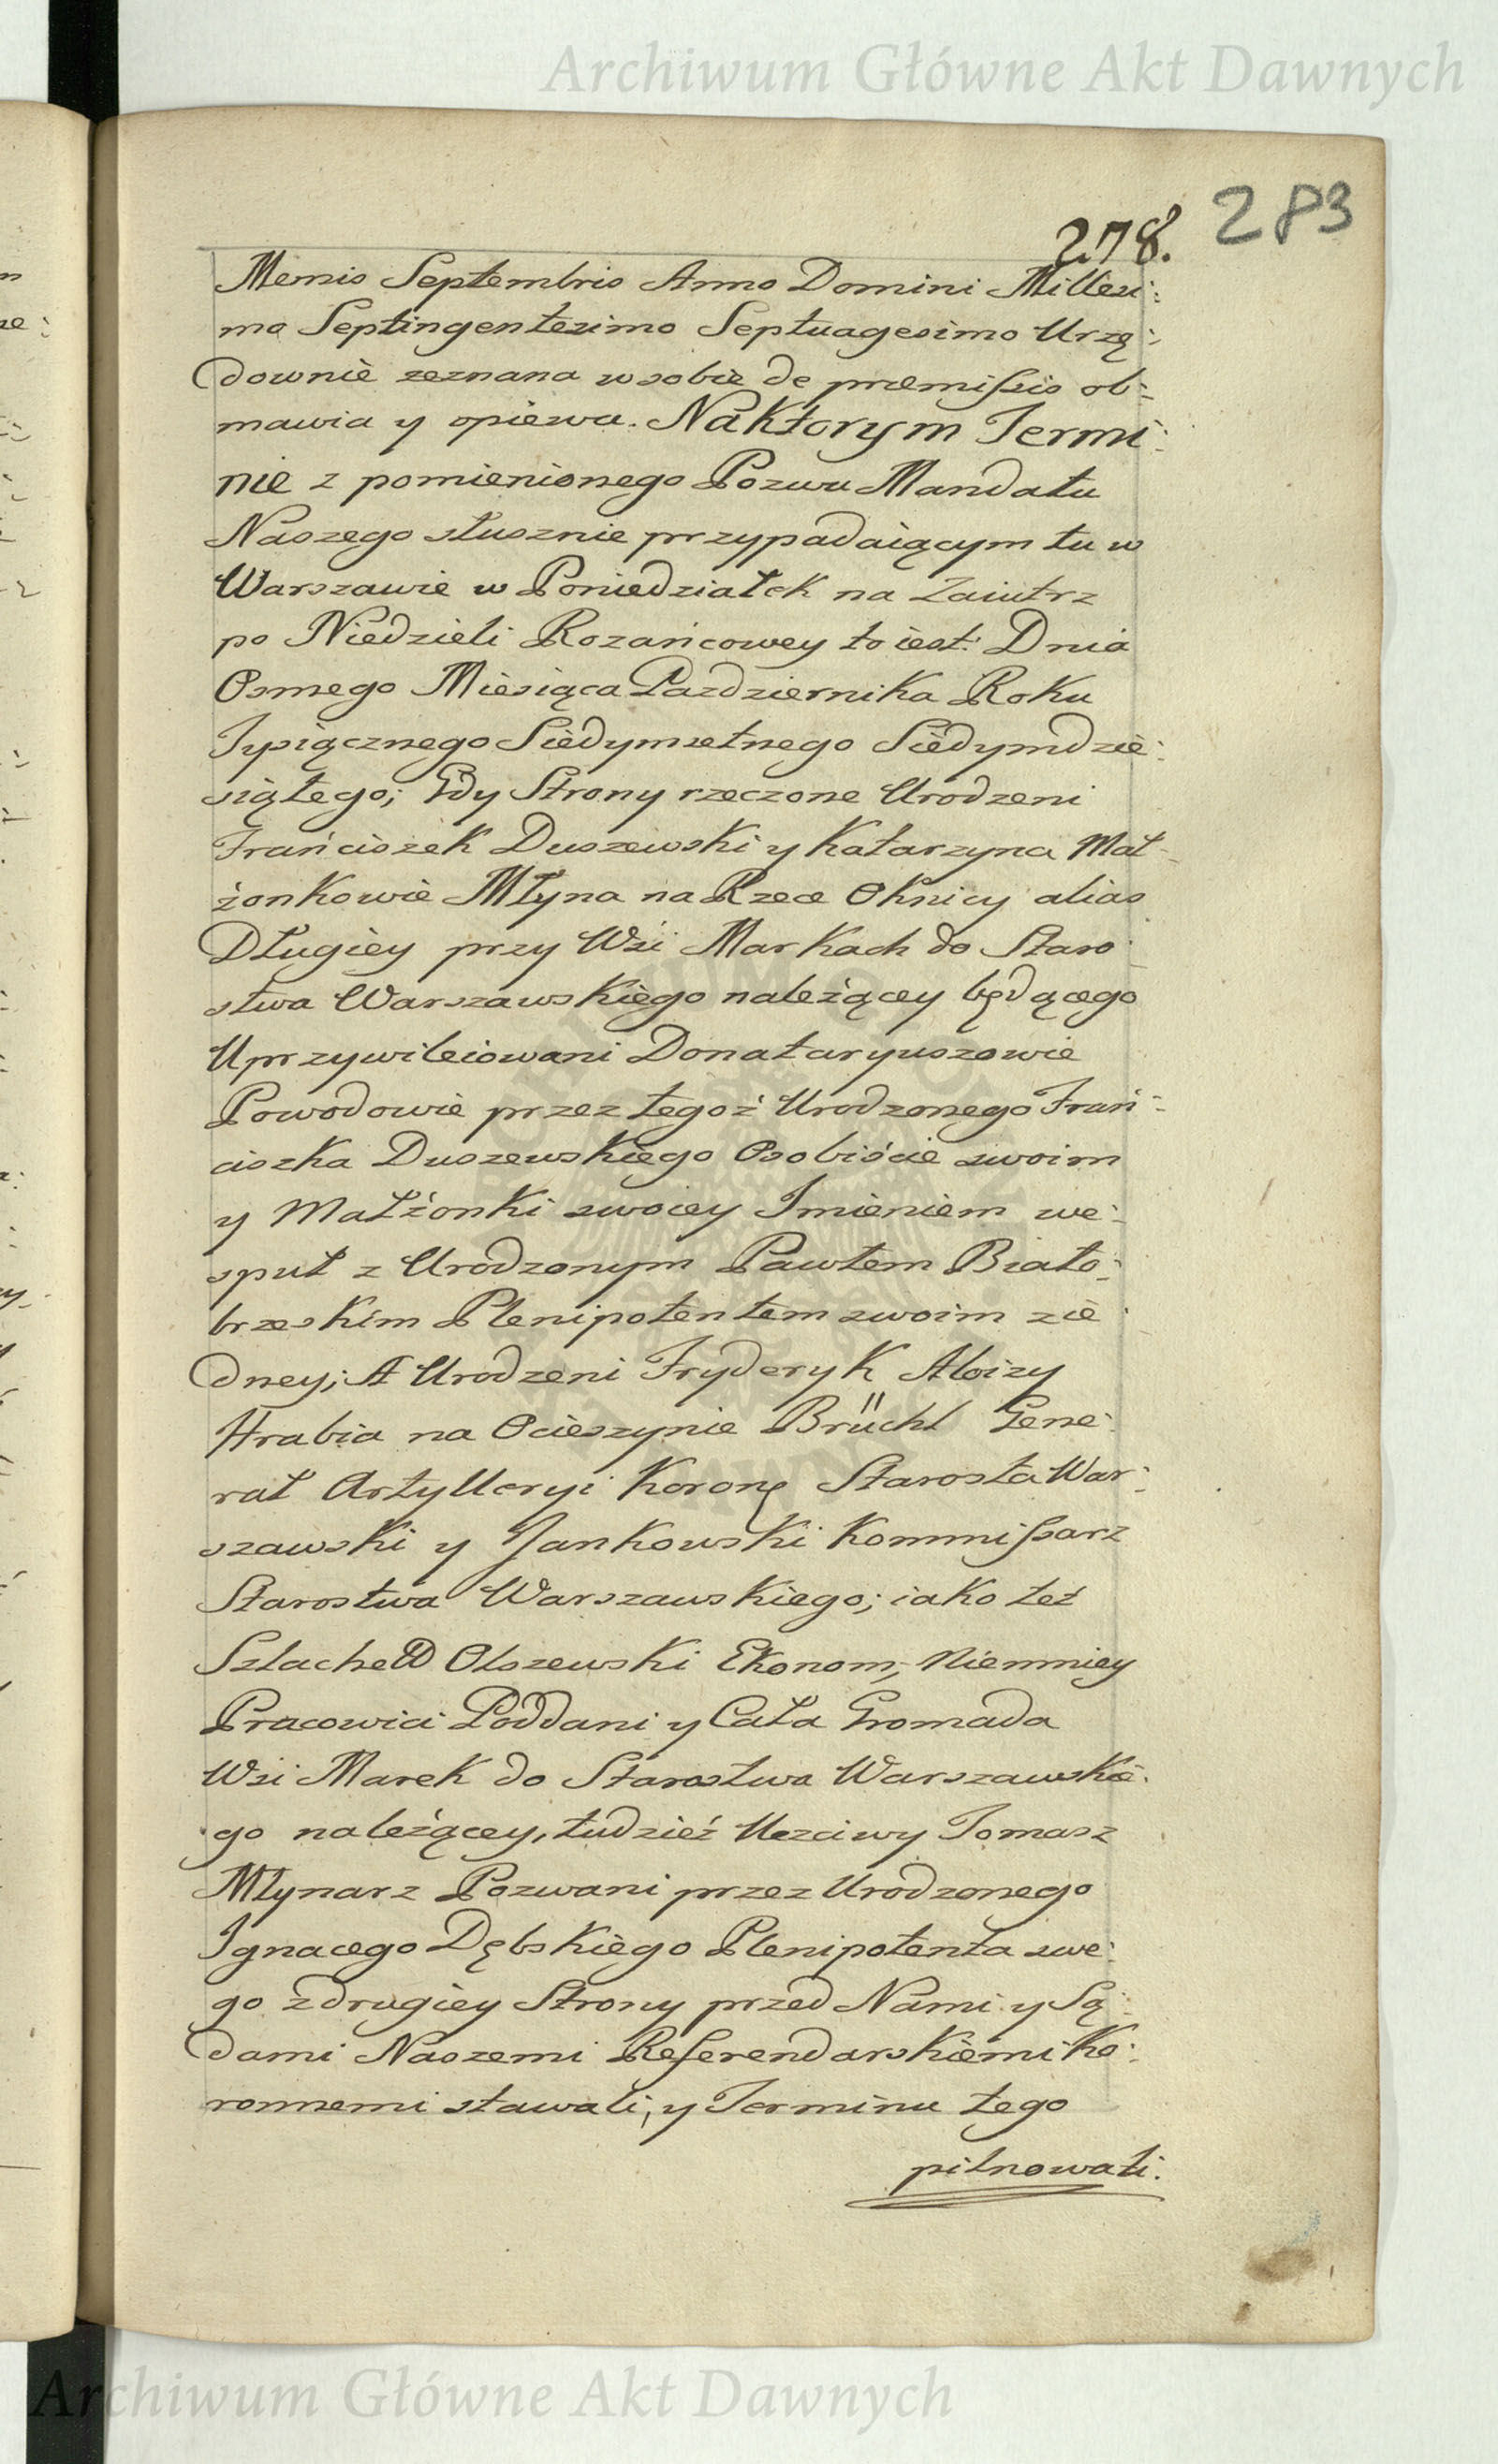 Archiwum Główne Akt Dawnych
283
278.
Mensis Septembris Anno Domini Millesi:
mo Septingentesimo Septuagesimo Urzę:
downie zeznana w sobie de præmissis ob:
mawia y opiewa. Na Ktorym Termi:
nie z pomienionego Pozwu Mandatu
Naszego słusznie przypadaiącym tu w
Warszawie w Poniedziałek na Zaiutrz
po Niedzieli Rozańcowey to iest: Dnia
Osmego Miesiąca Pazdziernika Roku
Tysiącznego Siedymsetnego Siedymdzie:
siątego; Gdy Strony rzeczone Urodzeni
Frańciszek Duszewski y Katarzyna Mał:
żonkowie Młyna na Rzece Oknicy alias
Długiey przy Wsi Markach do Staro:
stwa Warszawskiego należącey będącego
Uprzywileiowani Donataryuszowie
Powodowie przez tegoż Urodzonego Frań:
ciszka Duszewskiego Osobiście swoim
y Małżonki swoiey Imieniem we:
spuł z Urodzonym Pawłem Biało:
brzeskim Plenipotentem swoim z ie:
dney; A Urodzeni Fryderyk Aloizy
Hrabia na Ocieszynie Brüchl Gene:
rał Artylleryi Koronę Starosta War:
szawski y Jankowski Kommissarz
Starostwa Warszawskiego; iako też
Szlachett Olszewski Ekonom, Niemniey
Pracowici Poddani y Cała Gromada
Wsi Marek do Starostwa Warszawskie:
go należącey, tudzież Uczciwy Tomasz
Młynarz Pozwani przez Urodzonego
Ignacego Dębskiego Plenipotenta swe:
go z drugiey Strony przed Nami y Są:
dami Naszemi Referendarskiemi Ko:
ronnemi stawali, y Terminu tego
pilnowali.
Archiwum Główne Akt Dawnych